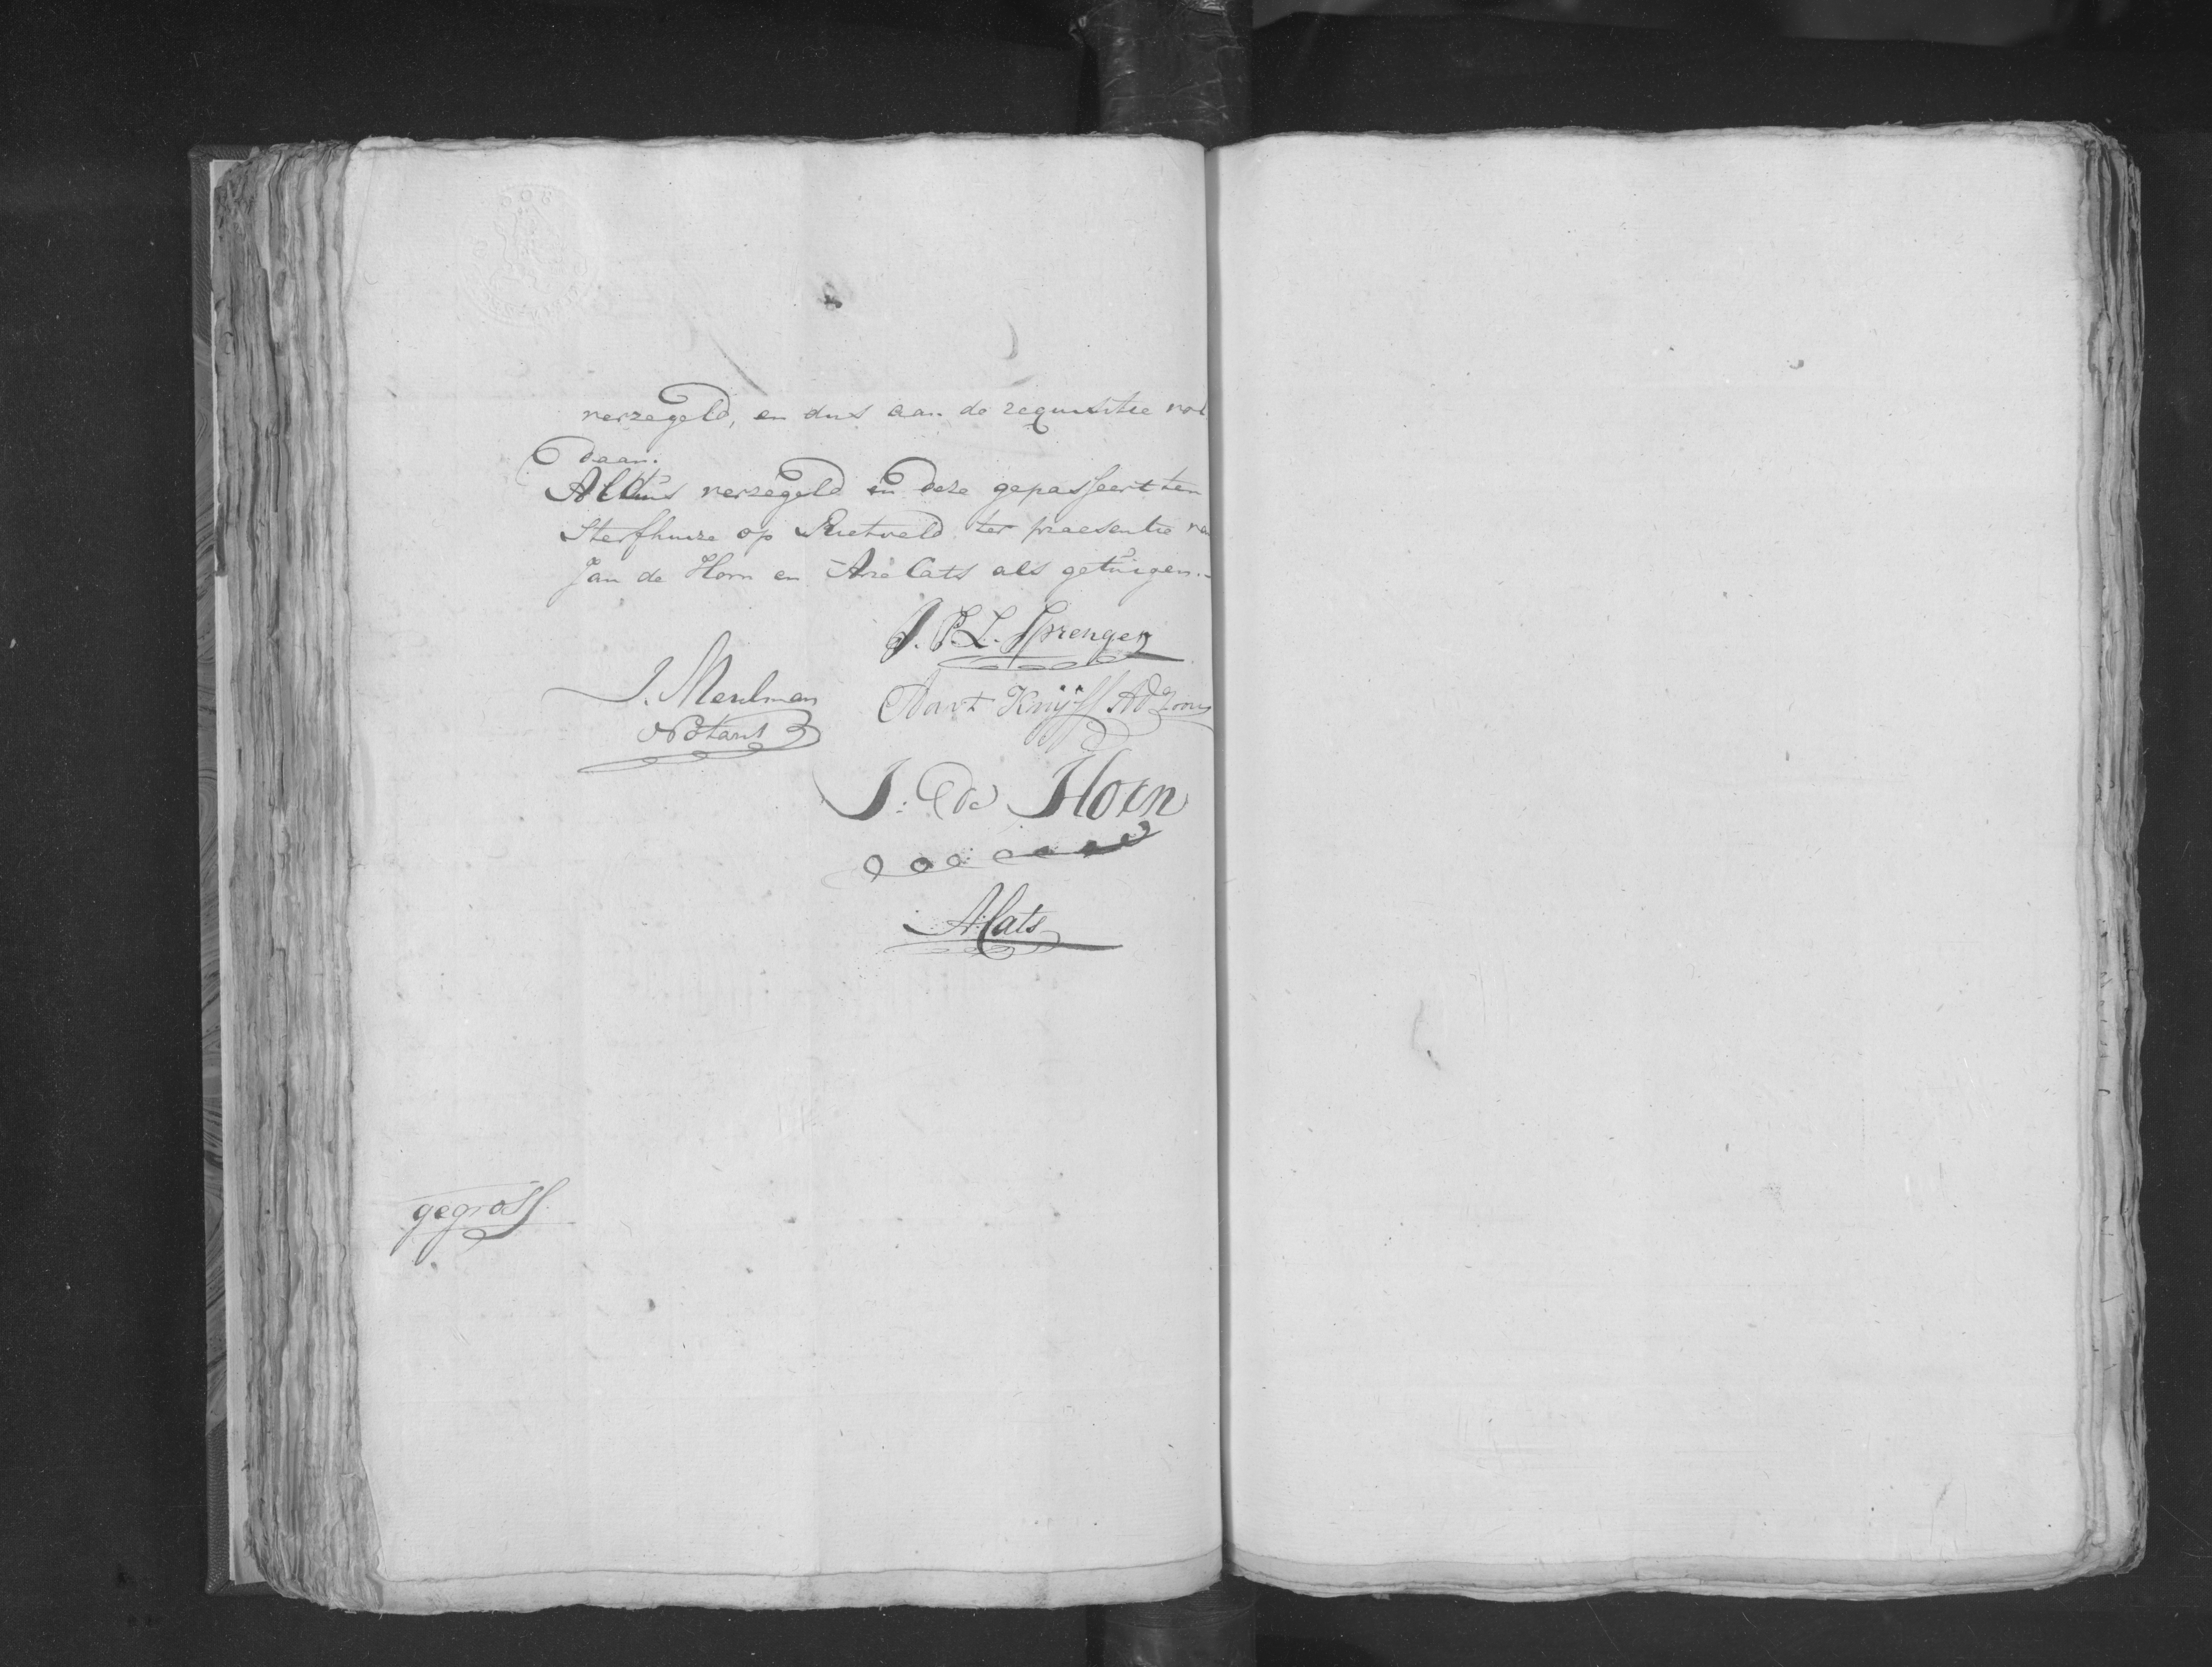 verzegeld, en dus aan de requisitie vol
daan.
Aldus verzegeld en deze gepasseert ten
Sterfhuize op Rietveld ter praesentie va
Jan de Horn en Arie Cats als getuigen.
J. P. L. Sprenger
J. Meulman
Notaris
Aart Knijff Adzoon
J: de Horn
A: Cats
gegross.